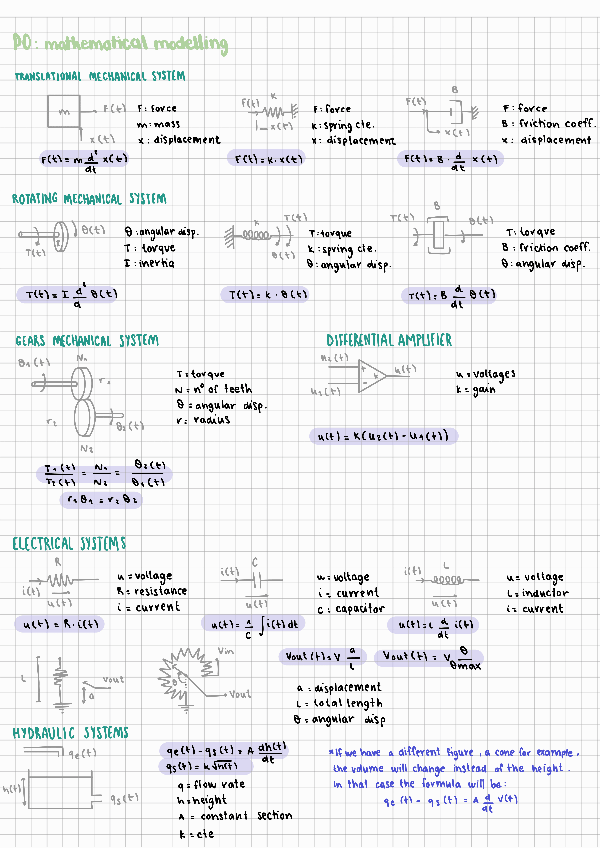 PO: mathematical modelling
TRANSLATIONAL MECHANICAL SYSTEM
m F(t) x(t)
F: force
m: mass
x: displacement
F(t) = m d²/dt x(t)
F(t) K x(t)
F: force
K: spring cte.
x: displacement
F(t) = K · x(t)
F(t) B x(t)
F: force
B: friction coeff.
x: displacement
F(t) = B · d/dt x(t)
ROTATING MECHANICAL SYSTEM
T(t) I θ(t)
θ: angular disp.
T: torque
I: inertia
T(t) = I d²/d θ(t)
K T(t) θ(t)
T: torque
K: spring cte.
θ: angular disp.
T(t) = K · θ(t)
T(t) B θ(t)
T: torque
B: friction coeff.
θ: angular disp.
T(t) = B d/dt θ(t)
GEARS MECHANICAL SYSTEM
θ1(t) N1 r1
r2 θ2(t) N2
T = torque
N = nº of teeth
θ = angular disp.
r = radius
T1(t)/T2(t) = N1/N2 = θ2(t)/θ1(t)
r1θ1 = r2θ2
DIFFERENTIAL AMPLIFIER
u2(t) + K u(t)
u1(t) -
u = voltages
K = gain
u(t) = K(u2(t) - u1(t))
ELECTRICAL SYSTEMS
R i(t) u(t)
u = voltage
R = resistance
i = current
u(t) = R · i(t)
C i(t) u(t)
u = voltage
i = current
C = capacitor
u(t) = 1/C ∫ i(t) dt
L i(t) u(t)
u = voltage
L = inductor
i = current
u(t) = L d/dt i(t)
L a Vout
Vin Vout
Vout(t) = V a/L
Vout(t) = V θ/θmax
a = displacement
L = total length
θ = angular disp
HYDRAULIC SYSTEMS
qe(t)
h(t) qs(t)
qe(t) - qs(t) = A dh(t)/dt
qs(t) = K √h(t)
q = flow rate
h = height
A = constant section
K = cte
*If we have a different figure, a cone for example,
the volume will change instead of the height.
In that case the formula will be:
qe(t) - qs(t) = A d/dt V(t)